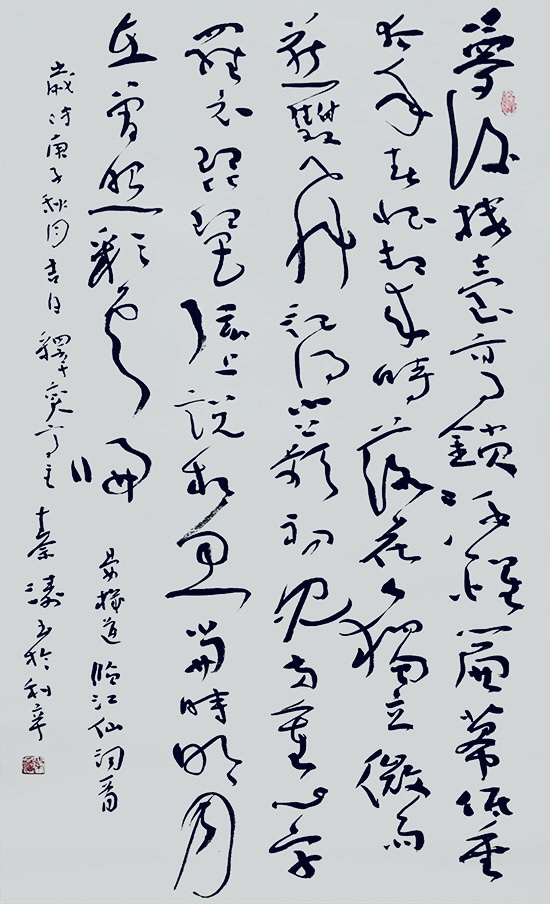 夢後樓臺高鎖酒醒簾幕低垂
去年春恨却來時落花人獨立微雨
燕雙飛記得小蘋初見兩重心字
羅衣琵琶弦上說相思當時明月
在曾照彩雲歸
晏機道臨江仙詞一首
歲时庚子秋月吉日釋主秦濤書於利辛